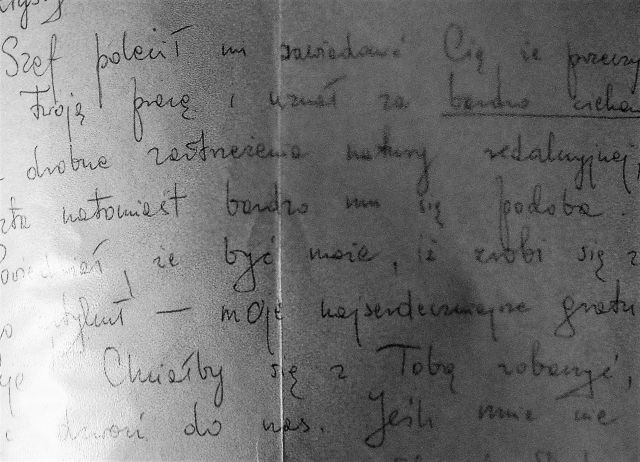 Szef polecił mi zawiadomić Cię, że przeczy
Twoją pracę i uznał za bardzo ciekaw
drobne zastrzeżenia natury redakcyjnej,
natomiast bardzo mu się podoba.
Powiedział, że być może, iż zrobi się z
— moje najserdeczniejsze gratu
Chciałby się z Tobą zobaczyć,
dzwoń do nas. Jeśli mnie nie